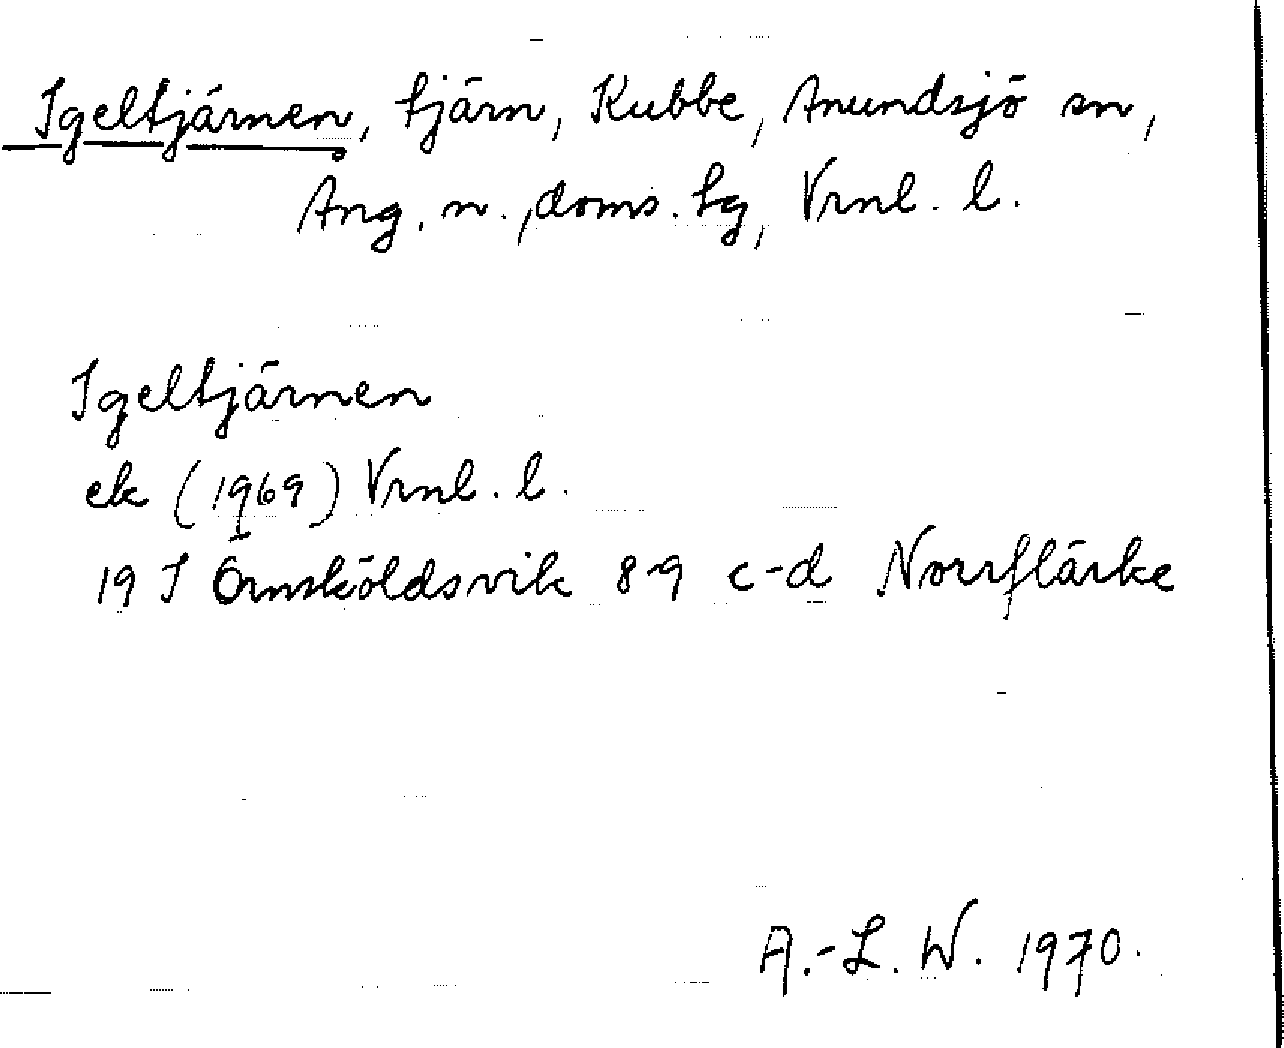 Igeltjärnen, tjärn, Kubbe, Anundsjö sn,
Ång. n., doms. tg, Vrnl. l.
Igeltjärnen
ek (1969) Vrnl. l.
19 I Örnsköldsvik 8-9 c-d Norrflärke
A.-L. W. 1970.